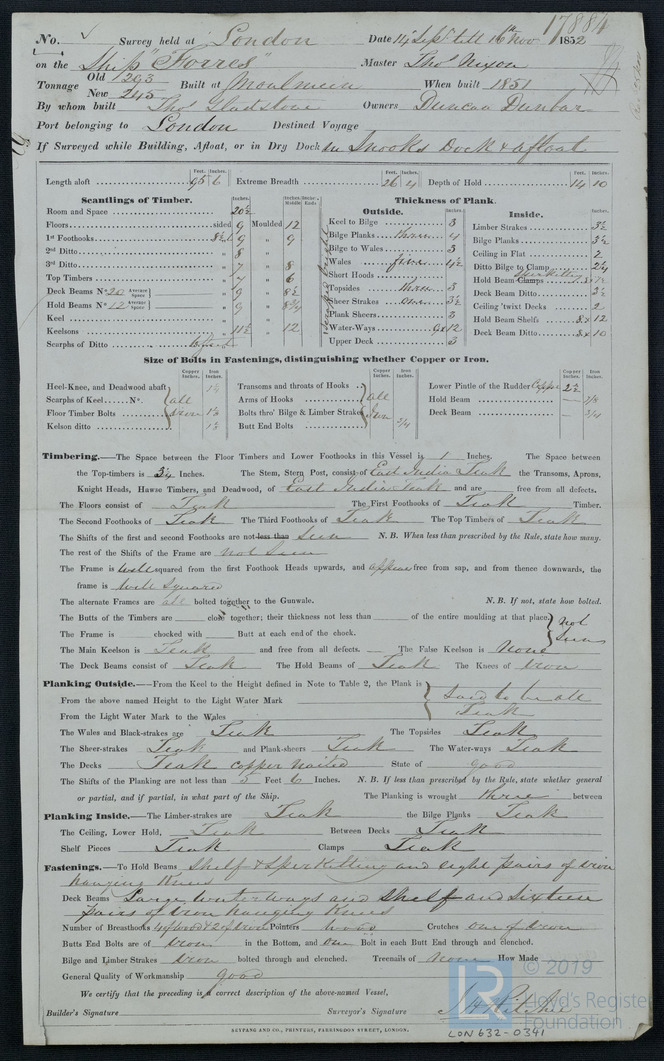 17884
No. ✓ Survey held at London Date 14 Sept till 16th Nov 1852
on the Ship "Forres" Master Thos Nixon
Tonnage Old 203 New 245 Built at Moulmein When built 1851
By whom built Thos Gladstone Owners Duncan Dunbar
Port belonging to London Destined Voyage
If Surveyed while Building, Afloat, or in Dry Dock in Snooks Dock & afloat
Length aloft 95 6 Extreme Breadth 26 4 Depth of Hold 14 10
Feet. Inches. Feet. Inches. Feet. Inches.
Scantlings of Timber. Thickness of Plank.
Outside. Inside.
Room and Space 20½
Floors sided 9 Moulded 12
1st Foothooks 8½ 9 " 9
2nd Ditto " 8 "
3rd Ditto " 7 " 8
Top Timbers " 7 " 6
Deck Beams No. 20 Average Space 9 " 8½
Hold Beams No. 12 Average Space 9 " 8¾
Keel
Keelsons 11½ " 12
Scarphs of Ditto
Keel to Bilge 3
Bilge Planks three 4
Bilge to Wales 3
Wales five 4½
Short Hoods
Topsides three 3
Sheer Strakes one 3½
Plank Sheers 3
Water-Ways 9x12
Upper Deck 3
Limber Strakes 3½
Bilge Planks 3½
Ceiling in Flat 2
Ditto Bilge to Clamp 2¼
Hold Beam Clamps Sperkitting
Deck Beam Ditto 2½
Ceiling 'twixt Decks 2
Hold Beam Shelfs 8x12
Deck Beam Ditto 8x10
Size of Bolts in Fastenings, distinguishing whether Copper or Iron.
Copper Inches. Iron Inches. Copper Inches. Iron Inches. Copper Inches. Iron Inches.
Heel-Knee, and Deadwood abaft
Scarphs of Keel No. all
Floor Timber Bolts Iron 1⅛
Kelson ditto 1⅛
Transoms and throats of Hooks
Arms of Hooks all
Bolts thro' Bilge & Limber Strakes Iron
Butt End Bolts ¾
Lower Pintle of the Rudder Copper 2½
Hold Beam — 7/8
Deck Beam — 3/4
Timbering.—The Space between the Floor Timbers and Lower Foothooks in this Vessel is 1 Inches. The Space between
the Top-timbers is 3¼ Inches. The Stem, Stern Post, consist of East India Teak the Transoms, Aprons,
Knight Heads, Hawse Timbers, and Deadwood, of East India Teak and are free from all defects.
The Floors consist of Teak The First Foothooks of Teak Timber.
The Second Foothooks of Teak The Third Foothooks of Teak The Top Timbers of Teak
The Shifts of the first and second Foothooks are not less than Seen N.B. When less than prescribed by the Rule, state how many.
The rest of the Shifts of the Frame are not Seen
The Frame is well squared from the first Foothook Heads upwards, and appear free from sap, and from thence downwards, the
frame is well Squared
The alternate Frames are all bolted together to the Gunwale. N.B. If not, state how bolted.
The Butts of the Timbers are close together; their thickness not less than of the entire moulding at that place, not
The Frame is chocked with Butt at each end of the chock. Seen
The Main Keelson is Teak and free from all defects.— The False Keelson is None
The Deck Beams consist of Teak The Hold Beams of Teak The Knees of Iron
Planking Outside.—From the Keel to the Height defined in Note to Table 2, the Plank is
From the above named Height to the Light Water Mark Said to be all
From the Light Water Mark to the Wales Teak
The Wales and Black-strakes are Teak The Topsides Teak
The Sheer-strakes Teak and Plank-sheers Teak The Water-ways Teak
The Decks Teak copper nailed State of good
The Shifts of the Planking are not less than 5 Feet 6 Inches. N.B. If less than prescribed by the Rule, state whether general
or partial, and if partial, in what part of the Ship. The Planking is wrought three between
Planking Inside.—The Limber-strakes are Teak the Bilge Planks Teak
The Ceiling, Lower Hold, Teak Between Decks Teak
Shelf Pieces Teak Clamps Teak
Fastenings.—To Hold Beams Shelf & Sperkitting and eight pairs of Iron
hanging Knees
Deck Beams Large Waterways and Shelf and Sixteen
pairs of Iron hanging Knees
Number of Breasthooks 4 of wood & 2 of Iron Pointers Crutches one of Iron
Butts End Bolts are of Iron in the Bottom, and one Bolt in each Butt End through and clenched.
Bilge and Limber Strakes Iron bolted through and clenched. Treenails of None How Made
General Quality of Workmanship good
We certify that the preceding is a correct description of the above-named Vessel,
Builder's Signature Surveyor's Signature J H Ritchie
SEYFANG AND CO., PRINTERS, FARRINGDON STREET, LONDON.
LR © 2019
Lloyd's Register
Foundation
LON 632-0341